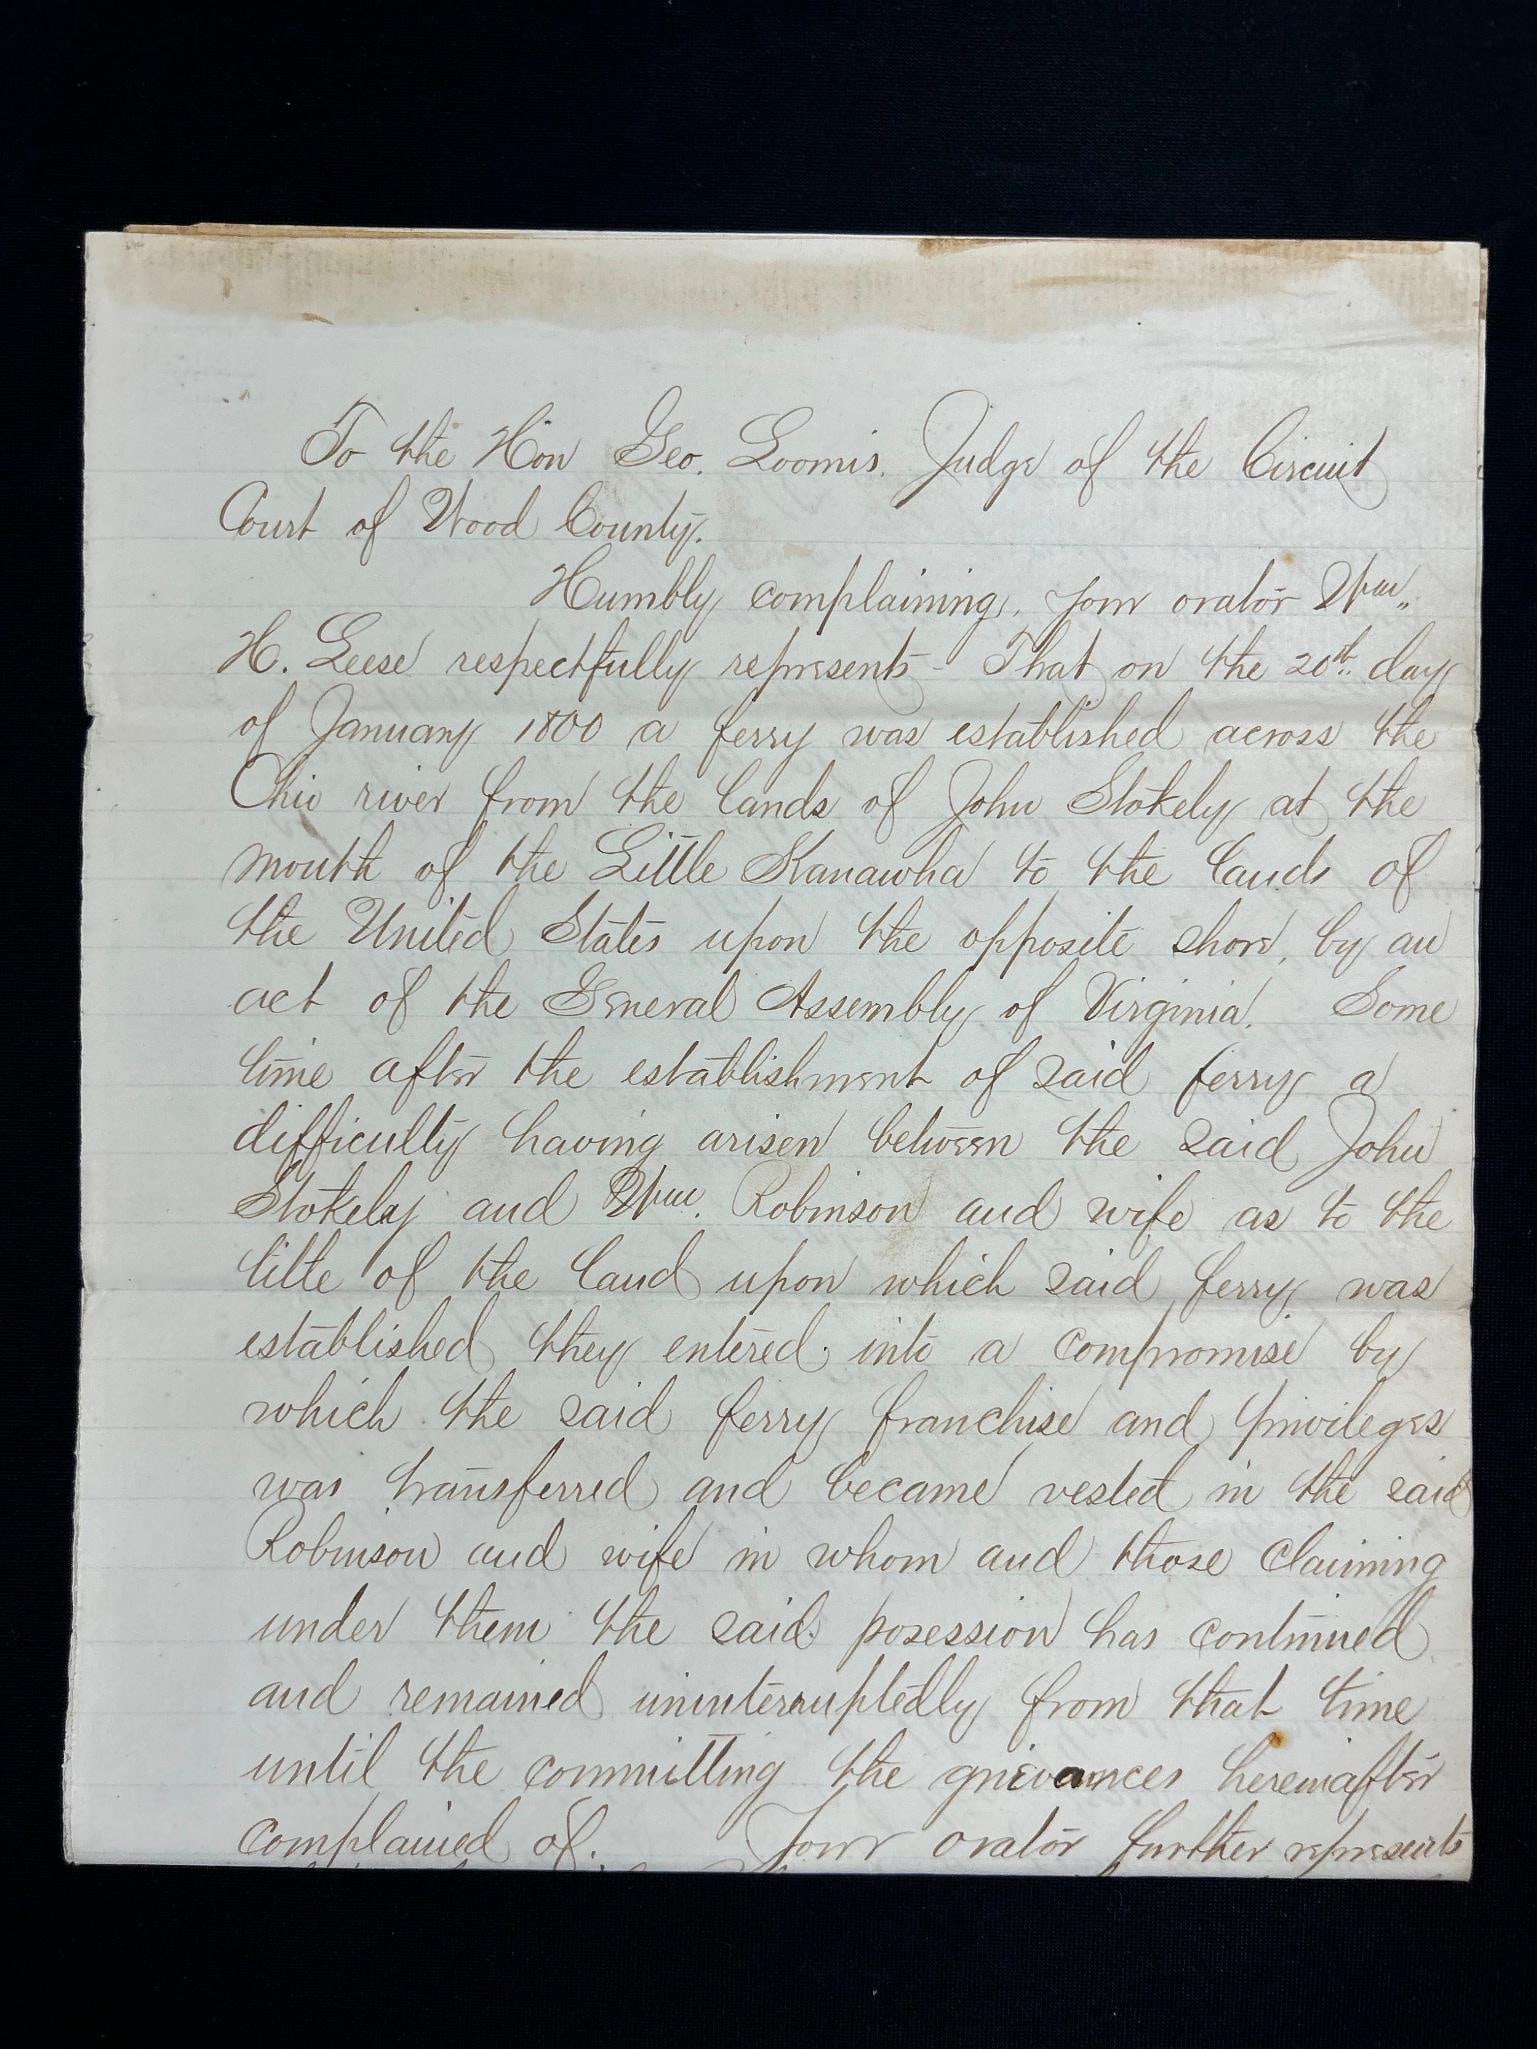 To the Hon Geo. Loomis. Judge of the Circuit
Court of Wood County.
Humbly complaining, your orator Wm.
H. Leese respectfully represents - That on the 20th. day
of January 1800 a ferry was established across the
Ohio river from the lands of John Stokely at the
mouth of the Little Kanawha to the lands of
the United States upon the opposite shore, by an
act of the General Assembly of Virginia. Some
time after the establishment of said ferry a
difficulty having arisen between the said John
Stokely and Wm. Robinson and wife as to the
title of the land upon which said ferry was
established they entered into a compromise by
which the said ferry franchise and privileges
was transferred and became vested in the said
Robinson and wife in whom and those claiming
under them the said posession has continued
and remained uninterruptedly from that time
until the committing the grievances hereinafter
complained of. Your orator further represents